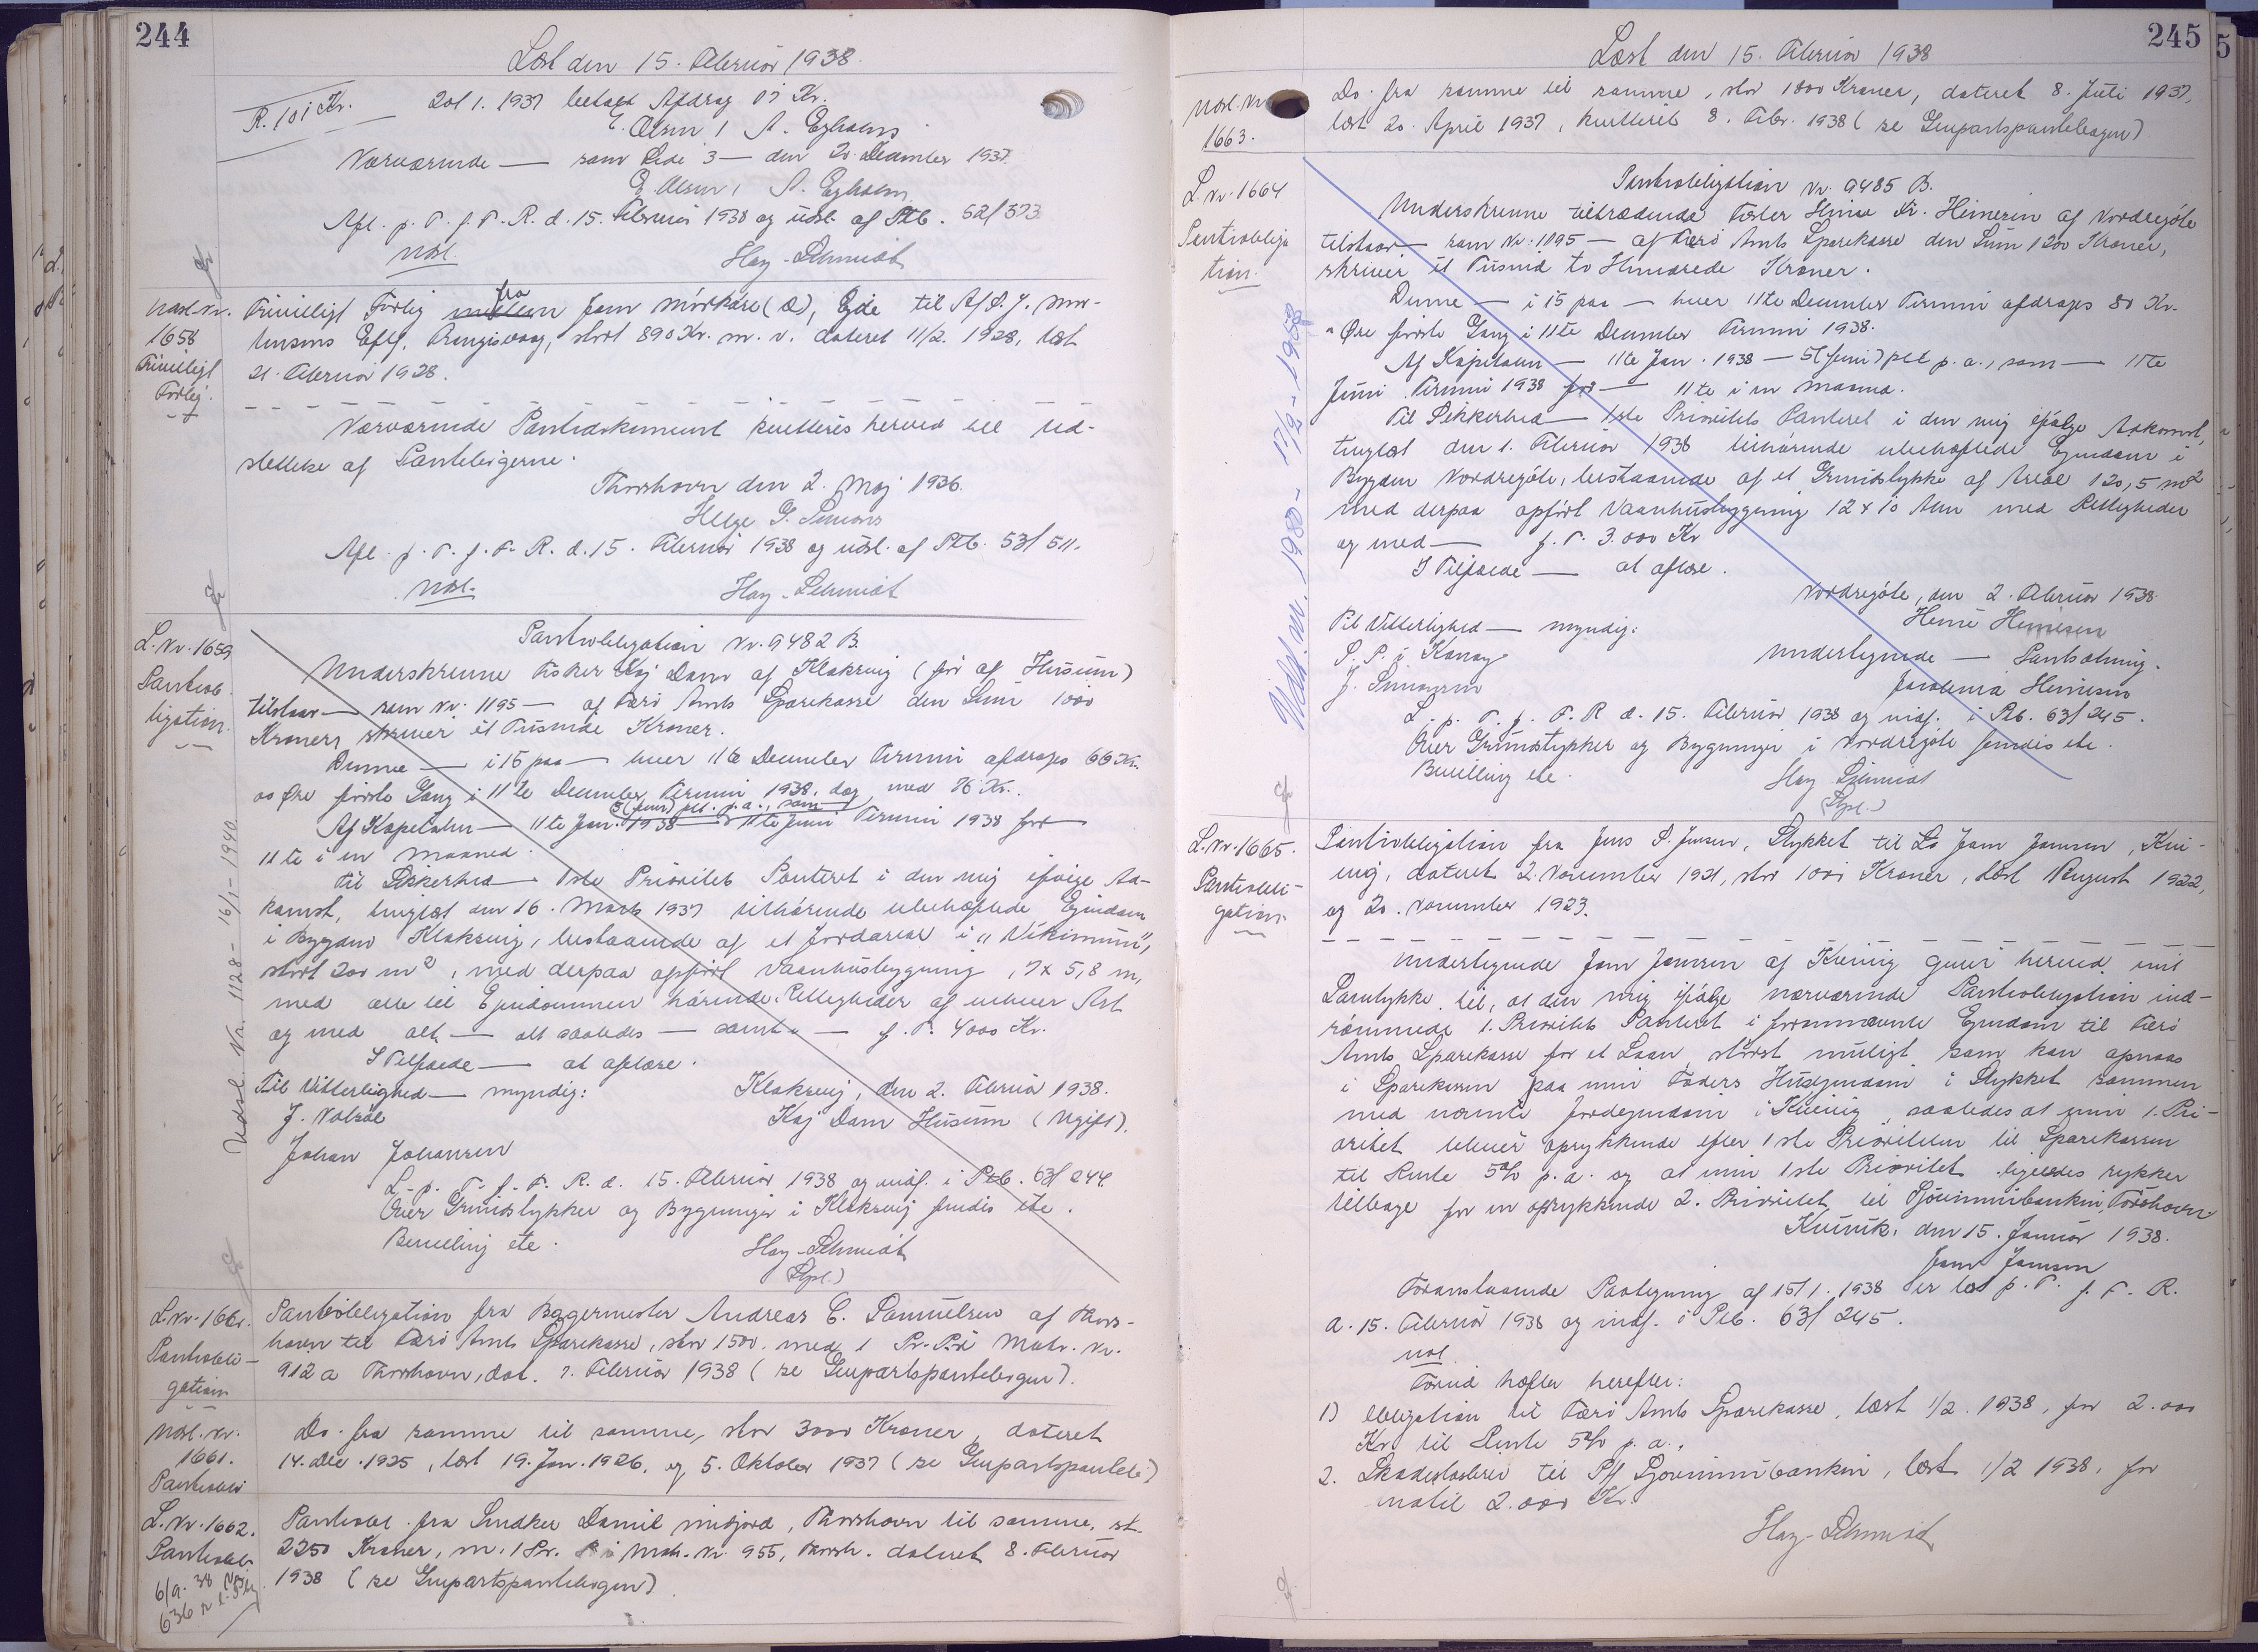 244
Læst den 15. Februar 1938.
R. 101 Kr.
20/1. 1937 betalt Afdrag Kr.
E. Olsen / A. Egholm
Nærværende — som Side 3 — den 20. December 1937.
E. Olsen / A. Egholm
Afl. p. T. f. F. R. d. 15. Februar 1938 og udsl. af Ptb. 52/373.
Udsl.
Hay-Schmidt
Udsl. Nr.
1658
Frivilligt
Forlig.
Frivilligt Forlig mellem fra Joen Mørkøre (d), Ejde til Af S. J. Mor-
tensens Eftf., Trongisvaag, stort 890 Kr. m. v. dateret 11/2. 1928, læst
21. Februar 1928.
Nærværende Pantedokument kvitteres herved til Ud-
slettelse af Pantebøgerne.
Thorshavn den 2. Maj 1936.
Helge G.
Afl. p. T. f. F. R. d. 15. Februar 1938 og udsl. af Ptb. 53/511.
Udsl.
Hay-Schmidt
L. Nr. 1659
Pantob-
ligation.
Pantobligation Nr. 9482 B.
Underskrevne Fisker Kaj Dam af Klaksvig (før af Husum)
tilstaar — som Nr. 1195 — af Færø Amts Sparekasse den Sum 1000
Kroner, skriver et Tusinde Kroner.
Denne — i 15 paa — hver 11te December Termin afdrages 66 Kr.
00 Øre første Gang i 11te December Termin 1938, dog med 76 Kr.
Af Kapitalen — 11te Jan. 1938 — 5 (fem) pct. p. a., som — 11te Juni Termin 1938 for —
11te i en Maaned.
Til Sikkerhed — 1ste Prioritets Panteret i den mig ifølge Ad-
komst, tinglæst den 16. Marts 1937 tilhørende ubehæftede Ejendom
i Bygden Klaksvig, bestaaende af et Jordareal i "Vikimum",
stort 200 m², med derpaa opført Vaanhusbygning, 7 x 5,8 m,
med alle til Ejendommen hørende Rettigheder af enhver Art
og med alt — alt saaledes — samt — f. T. 4000 Kr.
I Tilfælde — at aflæse.
Til Vitterlighed — myndig:
Klaksvig, den 2. Februar 1938.
Kaj Dam Husum (Ugift).
Johan Johansen
L. p. T. f. F. R. d. 15. Februar 1938 og indf. i Ptb. 63/244.
Over Grundstykker og Bygninger i Klaksvig findes ete.
Bevilling ete.
Hay-Schmidt
(Spl.)
Udsl. Nr. 1128 - 16/1 - 1940
L. Nr. 1660.
Pantobli-
gation
Pantobligation fra Bagermester Andreas C. Samuelsen af Thors-
havn til Færø Amts Sparekasse, stor 1500. med 1 Pr. P. i Matr. Nr.
912 a Thorshavn, dat. 7. Februar 1938 (se Genpartspantebogen).
Udsl. Nr.
1661.
Pantobli
Do. fra samme til samme, stor 3000 Kroner, dateret
14. Dec. 1925, læst 19. Jan. 1926. og 5. Oktober 1937 (se Genpartspanteb.)
L. Nr. 1662.
Pantobl.
Pantobl. fra Snedker Daniel Midjord, Thorshavn til samme, st.
2250 Kroner, m. 1 Pr. P. i Matr. Nr. 955, Thorsh. dateret 8. Februar
1938 (se Genpartspantebogen).
245
Læst den 15. Februar 1938
Udsl. Nr
1663.
Do. fra samme til samme, stor 1800 Kroner, dateret 8. Juli 1937,
læst 20. April 1937, kvitteret 8. Febr. 1938 (se Genpartspantebogen)
L. Nr. 1664
Pantobliga
tion.
Pantobligation Nr. 9485 B.
Underskrevne tiltrædende Fæster Heine Kr. Heinesen af Nordregöte
tilstaar — som Nr. 1195 — af Færø Amts Sparekasse den Sum 1200 Kroner,
skriver et Tusind to Hundrede Kroner.
Denne — i 15 paa — hver 11te December Termin afdrages 80 Kr.
" Øre første Gang i 11te December Termin 1938.
Af Kapitalen — 11te Jan. 1938 — 5 (fem) pct p. a., som — 11te
Juni Termin 1938 for — 11te i en Maaned.
Til Sikkerhed — 1ste Prioritets Panteret i den mig ifølge Adkomst,
tinglæst den 1. Februar 1938 tilhørende ubehæftede Ejendom i
Bygden Nordregöte, bestaaende af et Grundstykke af Areal 120,5 m²
med derpaa opført Vaanhusbygning 12 x 10 Alen med Rettigheder
og med — f. T. 3.000 Kr
I Tilfælde — at aflæse.
Nordregöte, den 2. Februar 1938.
Heine Heinesen
Til Vitterlighed — myndig:
Undertegnede — Pantsætning.
Jacobina Heinesen
L. p. T. f. F. R d. 15. Februar 1938 og indf. i Ptb. 63/245.
Over Grundstykker og Bygninger i Nordregöte findes ete.
Bevilling ete.
Hay Schmidt
(Spl.)
Udsl. Nr. 1980 - 17/2 - 1958
L. Nr. 1665.
Pantobli-
gation.
Pantobligation fra Jens P. Jensen, Stykket til Joen Joensen, Kvi-
vig, dateret 2. November 1921, stor 1001 Kroner, læst August 1922,
og 20. November 1923.
Undertegnede Joen Joensen af Kvivig giver herved mit
Samtykke til, at den mig ifølge nærværende Pantobligation ind-
rømmede 1. Prioritets Panteret i forannævnte Ejendom til Færø
Amts Sparekasse for et Laan størst muligt som kan opnaas
i Sparekassen paa min Faders Husejendom i Stykket sammen
med nævnte Jordejendom i Kvivig, saaledes at min 1. Pri-
oritet bliver oprykkende efter 1ste Prioriteten til Sparekassen
til Rente 5% p. a. og at min 1ste Prioritet ligeledes rykker
tilbage for en oprykkende 2. Prioritet til Sjóvinnubankin, Tórshavn
Kvívík, den 15. Januar 1938.
Joen Joensen
Foranstaaende Paategning af 15/1. 1938 er læst p. T. f. F. R.
d. 15. Februar 1938 og indf. i Ptb. 63/245.
Udsl
Forud hæfter herefter:
1) Obligation til Færø Amts Sparekasse, læst 1/2. 1938, for 2.000
Kr til Rente 5% p. a.,
2. Skadesløsbrev til P/f Sjovinnubankin, læst 1/2 1938, for
indtil 2.000 Kr
Hay-Schmidt